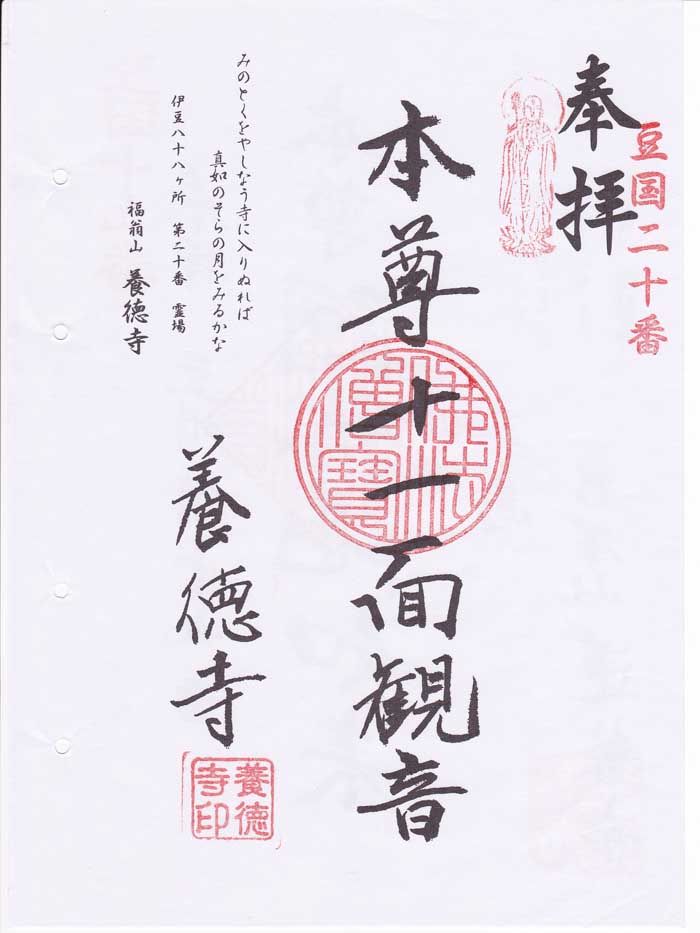 豆国二十番
奉拝
本尊十一面観音
佛法僧寶
みのとくをやしなう寺に入りぬれば
真如のそらの月をみるかな
伊豆八十八ヶ所 第二十番 霊場
福翁山 養徳寺
養徳寺
養徳寺印